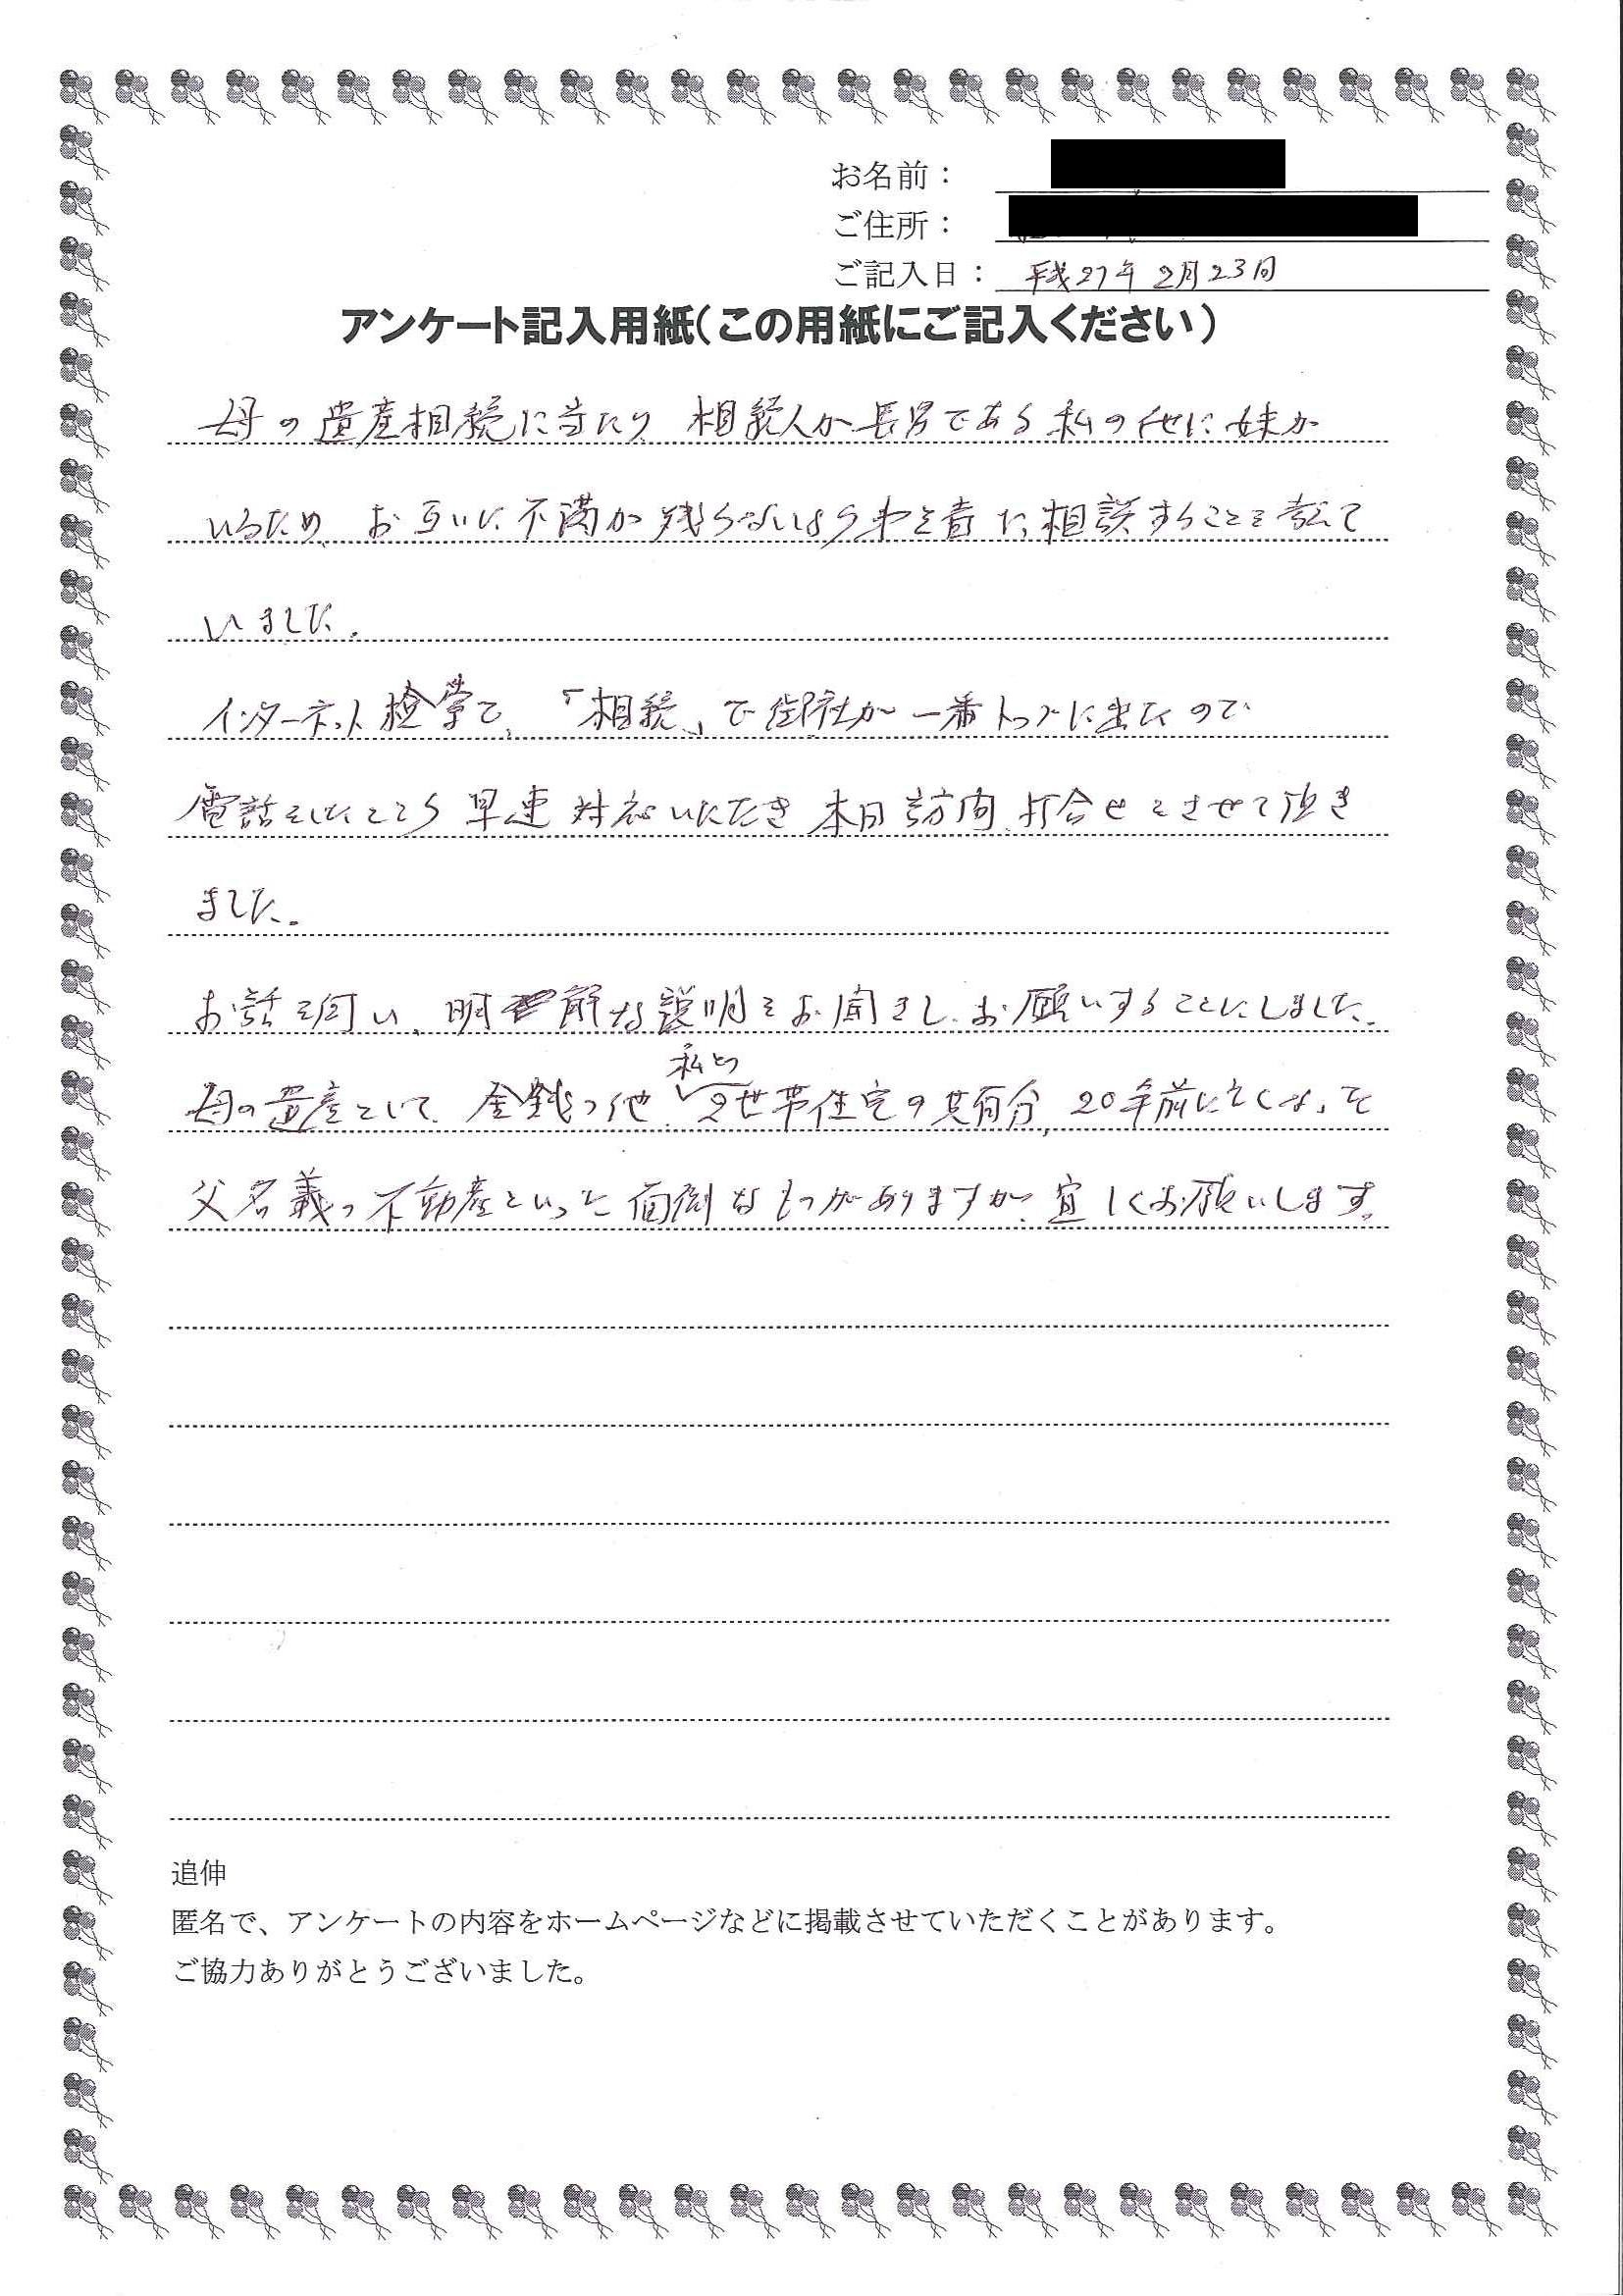 お名前：
ご住所：
ご記入日： 平成27年2月23日
アンケート記入用紙（この用紙にご記入ください）
母の遺産相続に当たり 相続人が長男である私の他に妹が
いるため、お互いに不満が残らないよう 者に相談することを考えて
いました。
インターネット検索で、「相続」で御社が一番トップに出たので
電話をしたところ 早速対応いただき 本日訪問、打合せをさせて頂き
ました。
お話を伺い、明解な説明をお聞きし、お願いすることにしました。
私との
母の遺産として、金銭の他 2世帯住宅の共有分、20年前に亡くなった
父名義の不動産といった面倒なものがありますが、宜しくお願いします。
追伸
匿名で、アンケートの内容をホームページなどに掲載させていただくことがあります。
ご協力ありがとうございました。